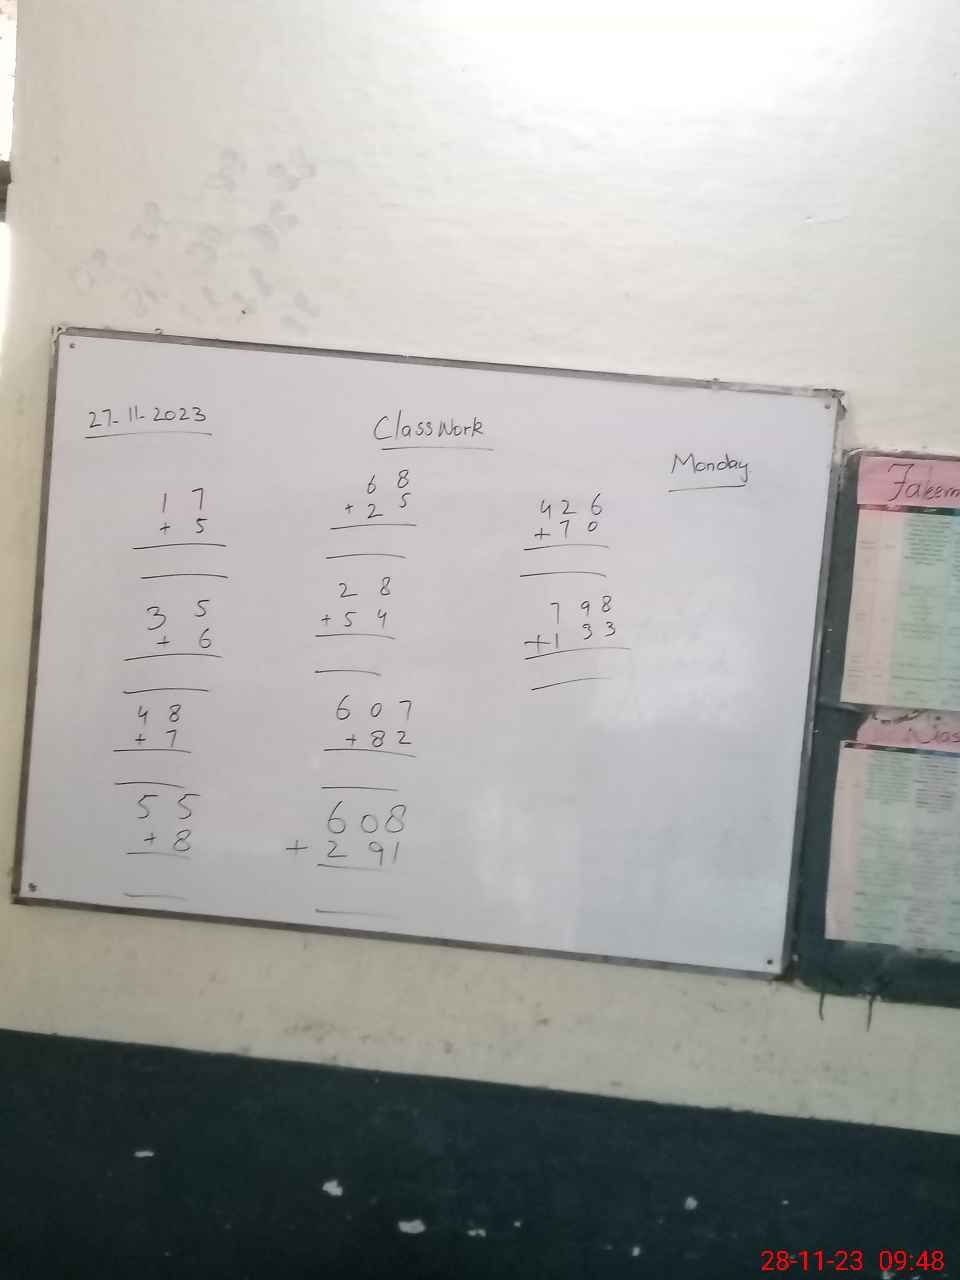 27-11-2023
ClassWork
Monday
1 7
+ 5
3 5
+ 6
4 8
+ 7
5 5
+ 8
6 8
+ 2 5
2 8
+ 5 4
6 0 7
+ 8 2
6 0 8
+ 2 9 1
4 2 6
+ 7 0
7 9 8
+ 1 3 3
28-11-23 09:48